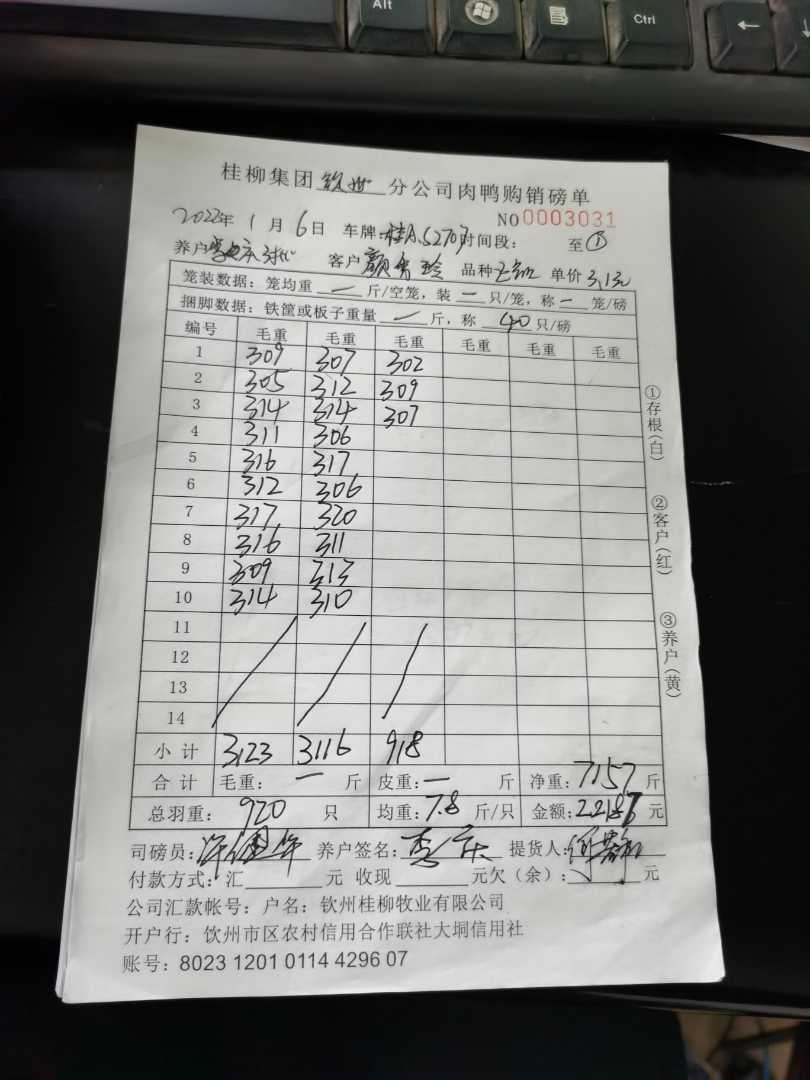 Alt
Ctrl
桂柳集团 钦州 分公司肉鸭购销磅单
NO 0003031
2022年 1月 6日 车牌:桂A 时间段: 至①
养户 客户 颜 玲 品种 单价 3.13元
笼装数据: 笼均重 一 斤/空笼, 装 一 只/笼, 称 一 笼/磅
捆脚数据: 铁筐或板子重量 一 斤, 称 40 只/磅
编号 毛重 毛重 毛重 毛重 毛重 毛重
1 309 307 302
2 305 312 309
3 314 314 307
4 311 306
5 316 317
6 312 306
7 317 320
8 316 311
9 309 313
10 314 310
11
12
13
14
小计 3123 3116 918
合计 毛重: 一 斤 皮重: 一 斤 净重: 7157 斤
总羽重: 920 只 均重: 7.8 斤/只 金额: 22187 元
司磅员: 许 养户签名: 李 庆 提货人: 何
付款方式: 汇 元 收现 元欠(余): 元
公司汇款帐号: 户名: 钦州桂柳牧业有限公司
开户行: 饮州市区农村信用合作联社大垌信用社
账号: 8023 1201 0114 4296 07
①存根(白)
②客户(红)
③养户(黄)